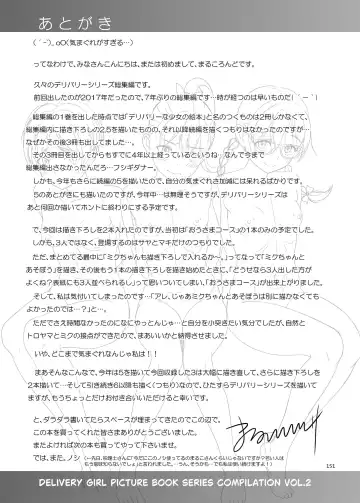 あとがき
(´-`)。oO(気まぐれがすぎる…)
ってなわけで、みなさんこんにちは、または初めまして、まるころんどです。
久々のデリバリーシリーズ総集編です。
前回出したのが2017年だったので、7年ぶりの総集編です…時が経つのは早いものだ(｀－´)
総集編の1巻を出した時点では「デリバリーな少女の絵本」と名のつくものは2冊しかなくて、
総集編内に描き下ろしの2.5を描いたものの、それ以降続編を描くつもりはなかったのですが…
なぜかその後3冊も出してました…。
その3冊目を出してからもすでに4年以上経っているというね…なんで今まで
総集編出さなかったんだろ…フシギダナー。
しかも、今年もさらに続編の5を描いたので、自分の気まぐれさ加減には呆れるばかりです。
5のあとがきにも描いたのですが、今年中…は無理そうですが、デリバリーシリーズは
あと何回か描いてホントに終わりにする予定です。
で、今回は描き下ろしを2本入れたのですが、当初は「おうさまコース」の1本のみの予定でした。
しかも、3人ではなく、登場するのはサヤとマキだけのつもりでした。
ただ、まとめてる最中に「ミクちゃんも描き下ろしで入れるか～。」ってなって「ミクちゃんと
あそぼう」を描き、その後もう1本の描き下ろしを描き始めたときに、「どうせなら3人出した方が
よくね？表紙にも3人並べられるし」って思いついてしまい、「おうさまコース」が出来上がりました。
そして、私は気付いてしまったのです…「アレ、じゃあミクちゃんとあそぼうは別に描かなくても
よかったのでは…？」と…。
ただでさえ時間なかったのになにやっとんじゃ…と自分を小突きたい気分でしたが、自然と
トロヤマとミクの初夜の話も描けたので、まあいいかと納得させました。
いや、どこまで気まぐれなんじゃ私は！！
まあそんなこんなで、今年は5を描いて今回収録した3は大幅に描き直して、さらに描き下ろしを
2本描いて…そして引き続き6以降も描く(つもり)なので、ひたすらデリバリーシリーズを描いて
ますが、もうちょっとだけお付き合いいただけると幸いです。
と、ダラダラ書いてたらスペースが埋まってきたのでこの辺で。
この本を買ってくれた皆さまありがとうございました。
またよければ次の本も買ってやって下さいませ。
では、また、ノシ
151
DELIVERY GIRL PICTURE BOOK SERIES COMPILATION VOL.2